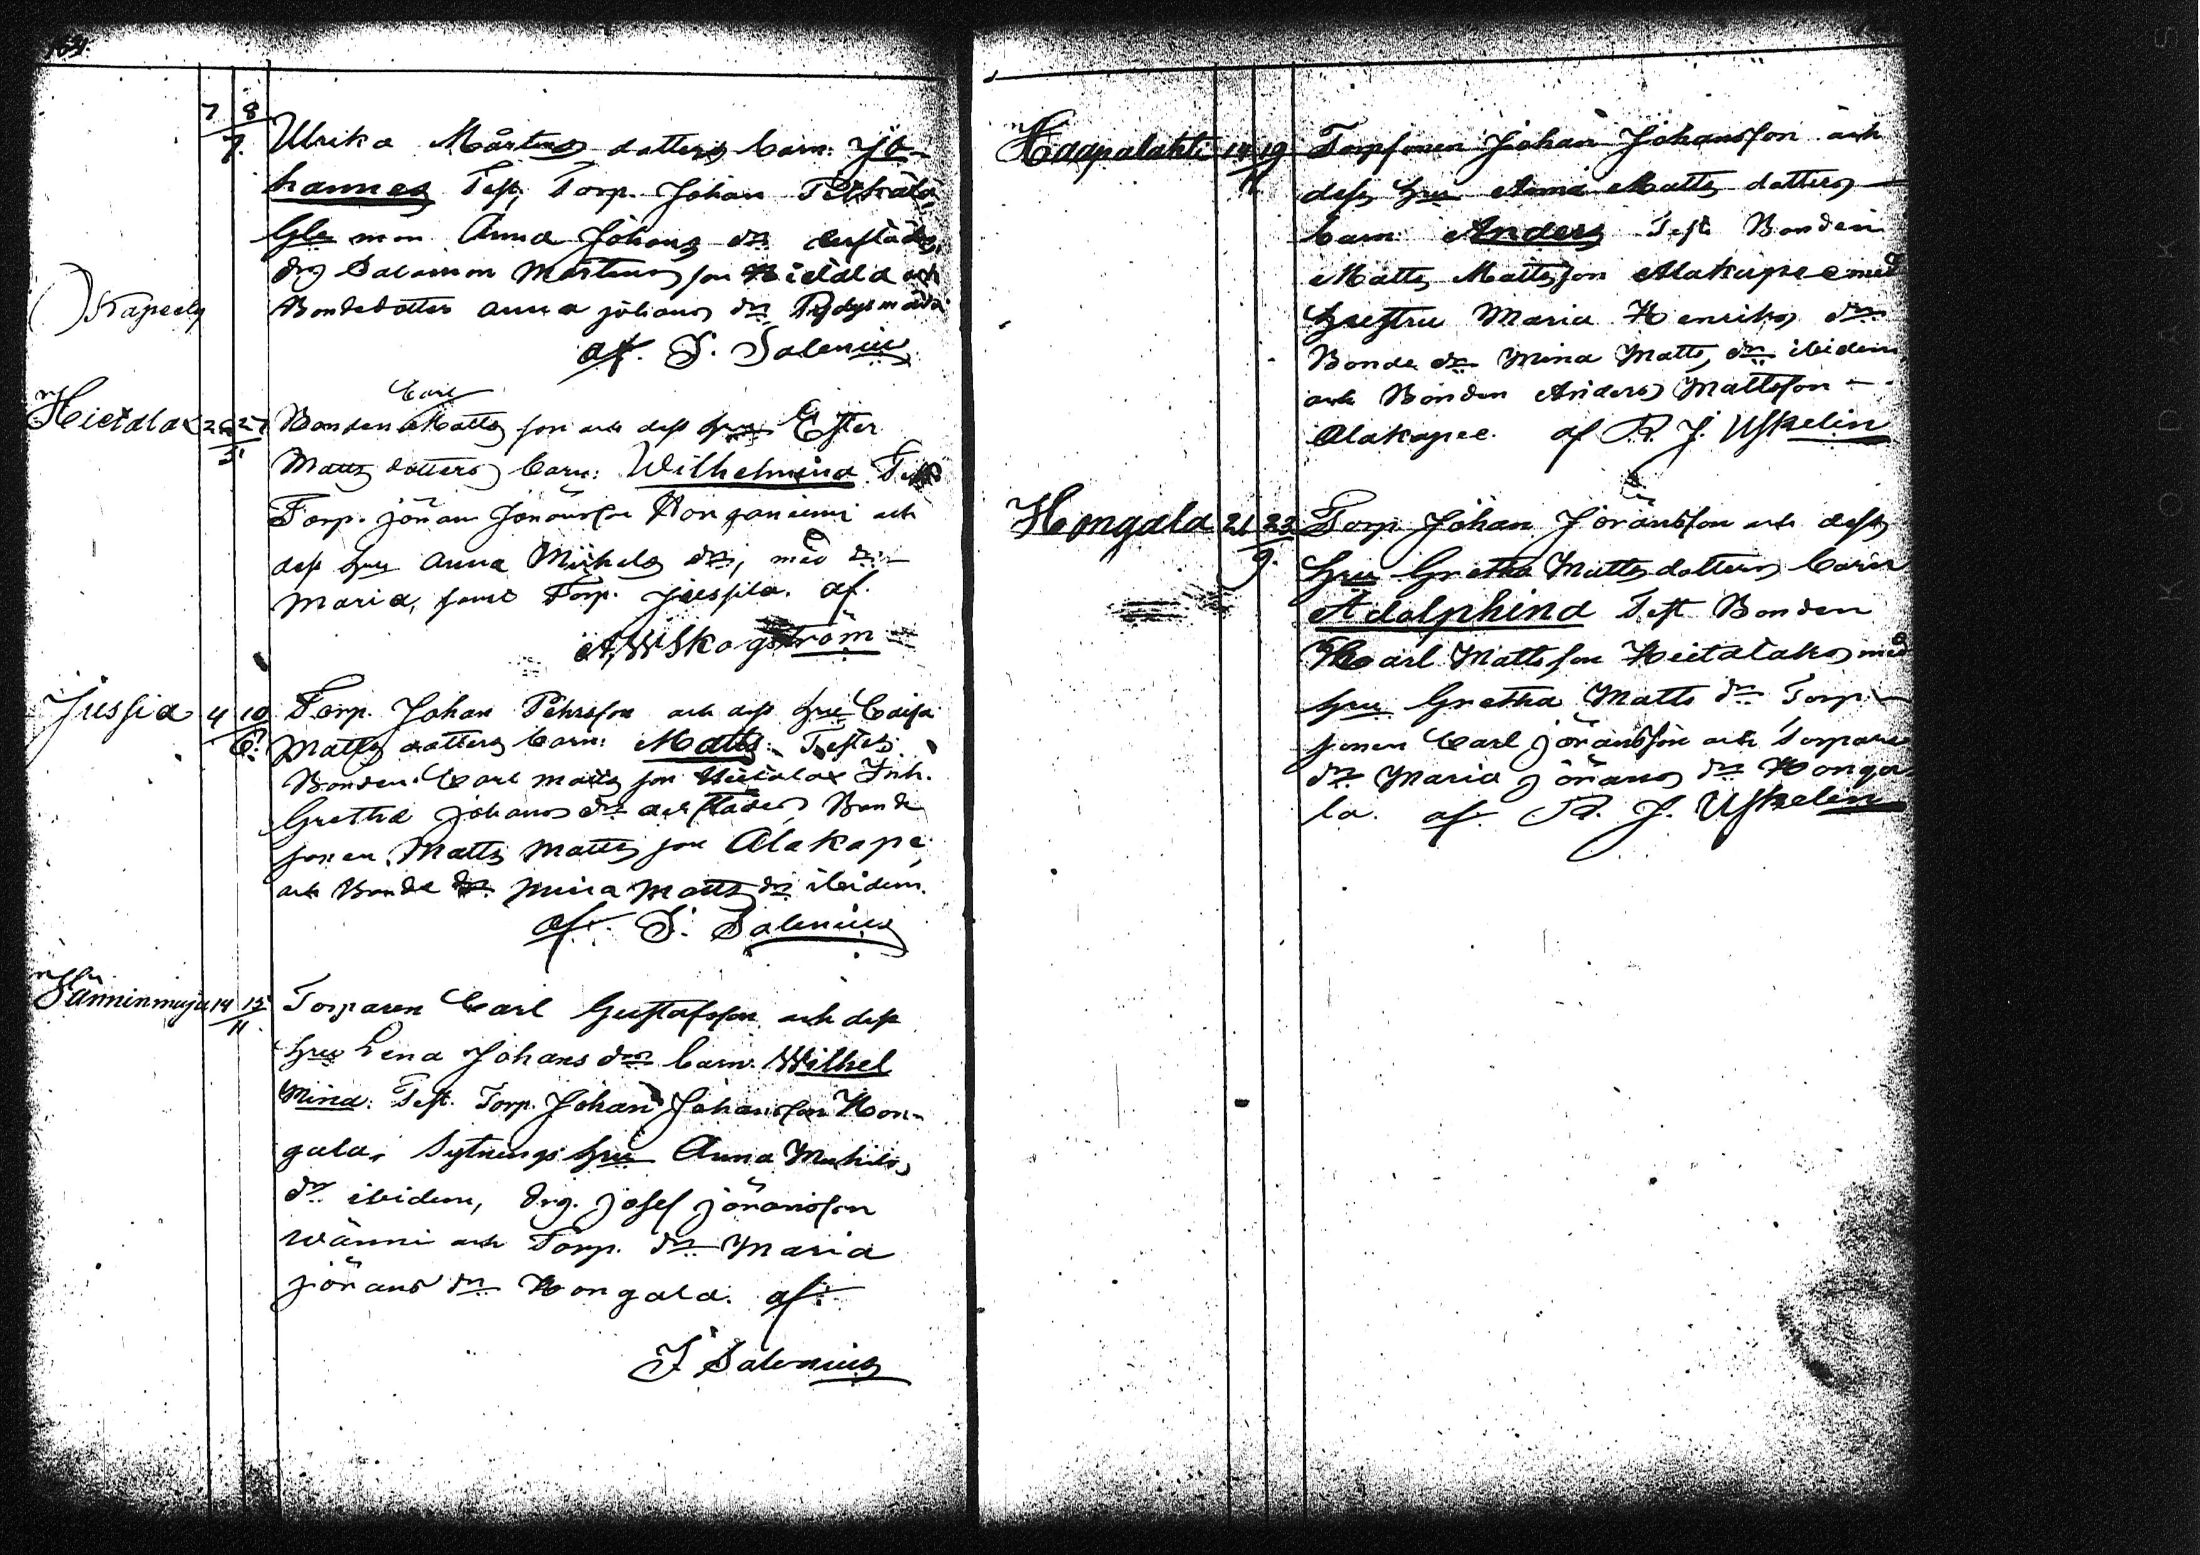 7 8
7. Ulrika Mårtens dotters barn: Jo-
hannes Test, Torp. Johan
Anna Johans dr
drg Salamon Mårtens son Hietala och
Kapeely Bondedotter Anna Johans dr
af. S. Salenius
Carl
Hietala 26 27 Bonden Matts son och dess hru Ester
5 Matts dotters barn: Wilhelmina Test
Torp. Jöran Jöransson och
dess hru Anna Michels dr, med dr
Maria, samt Torp. Jussila. af.
A W Skogström
Jussia 4 10 Torp. Johan Pehrsson och dess hru Caisa
6. Matts dotters barn: Matts. Testes.
Bonden Carl Matts son Hietala Inh.
Gretha Johans dr Bonde
sonen Matts Matts son Alakape,
och Bonde dr Mina Matts dr ibidem.
af. S. Salenius
14 15 Torparen Carl Gustafsson och dess
11. hru Lena Johans dr barn. Wilhel
mina: Test. Torp. Johan Johansson Hon-
gala, Sytnings hru Anna Michels
dr ibidem, drg. Josef Jöransson
Wänni och Torp. dr Maria
Jörans dr Hongala. af.
S Salenius
Haapalahti 14 19 Torpsonen Johan Johansson och
11. dess hru Anna Matts dotters
barn: Anders Test Bonden
Matts Mattsson Alakapee med
hustru Maria Henriks dr
Bonde dr Mina Matts dr ibidem
och Bonden Anders Mattsson
Alakapee. af R. J. Uskelin
Hongala 21 23 Torp. Johan Jöransson och dess
9. hru Gretha Matts dotters barn
Adolphina Test Bonden
Karl Mattsson Hietalaks med
hru Gretha Matts dr Torp-
sonen Carl Jöransson och Torpare
dr Maria Jörans dr Honga
la. af. R. J. Uskelin
KODAK S